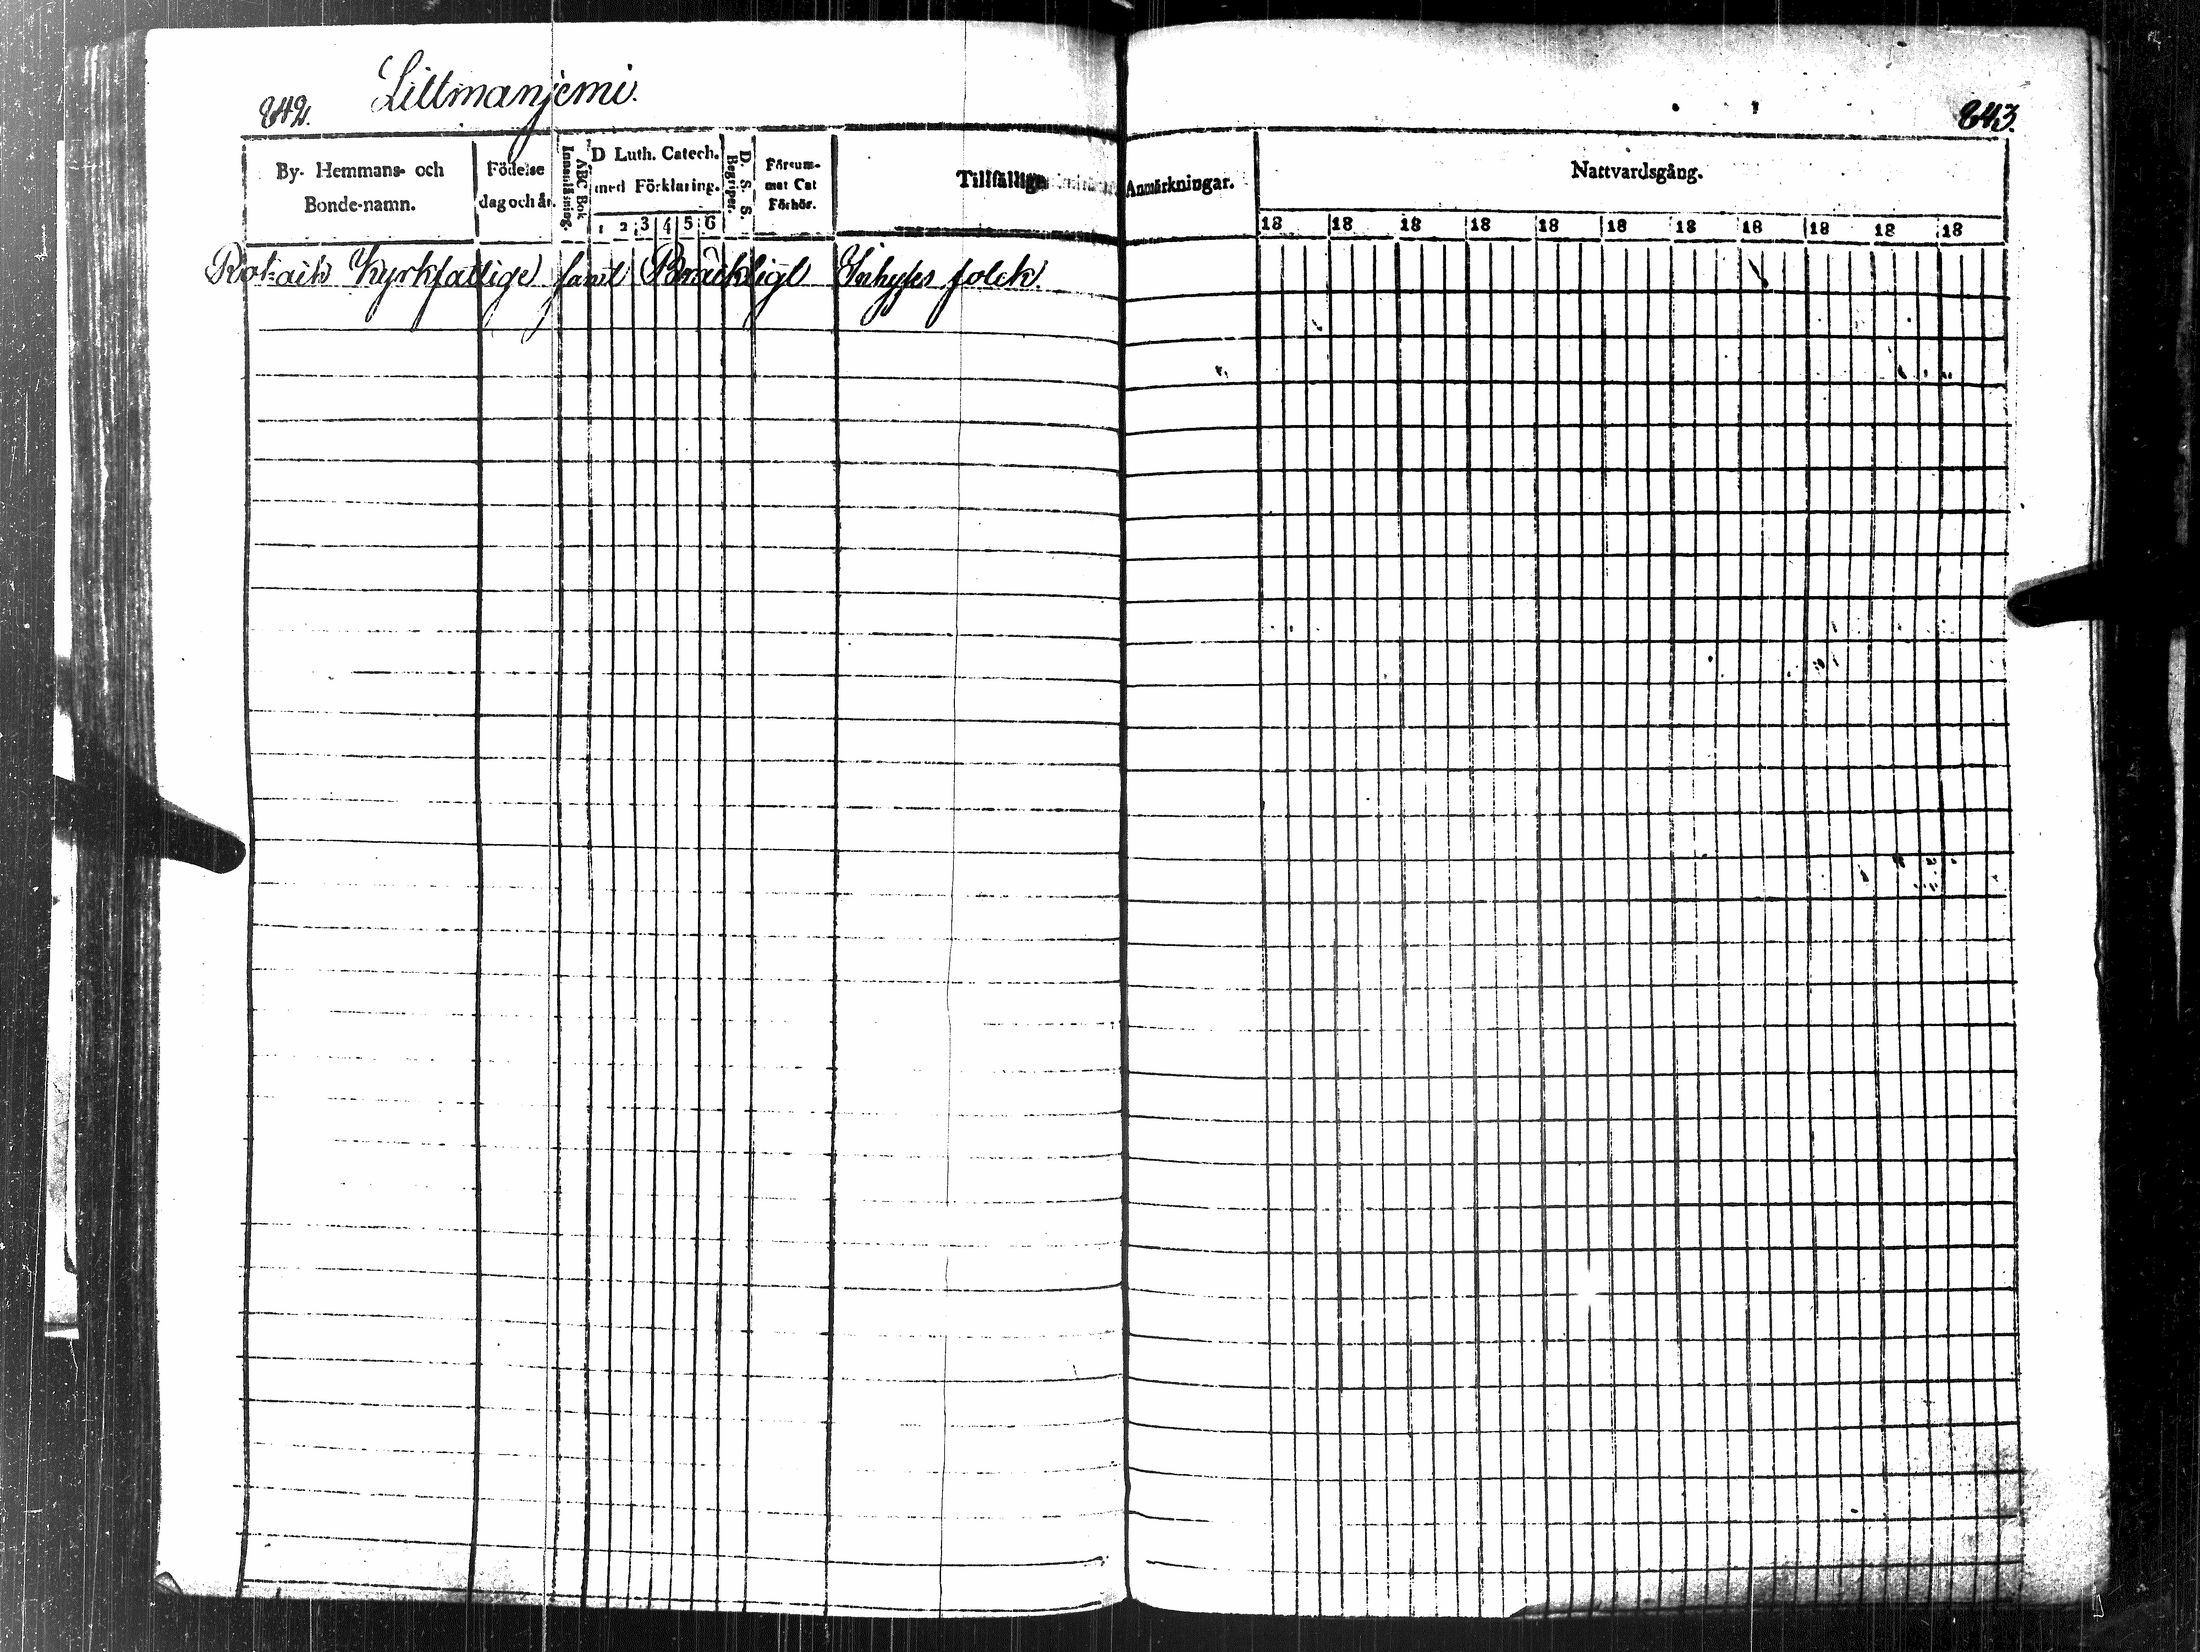 842.
Littmanjemi.
By- Hemmans- och Bonde-namn.
Födelse dag och år.
ABC Bok Innanläsning.
D Luth. Catech. med Förklaring.
1 2 3 4 5 6
D. S. S. Begriper.
Försummat Cat Förhör.
Tillfällige
Kyrkfattige samt Bräckligt Inhyses folck.
843.
Anmärkningar.
Nattvardsgång.
18 18 18 18 18 18 18 18 18 18 18